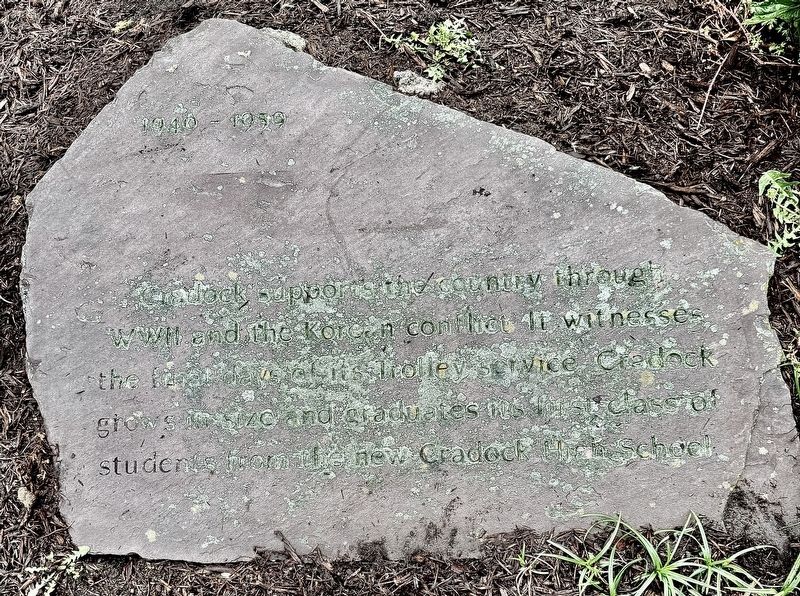 1940 - 1959
Cradock supports the country through
WWII and the Korean conflict. It witnesses
the final days of its Trolley service. Cradock
grows in size and graduates its first class of
students from the new Cradock High School